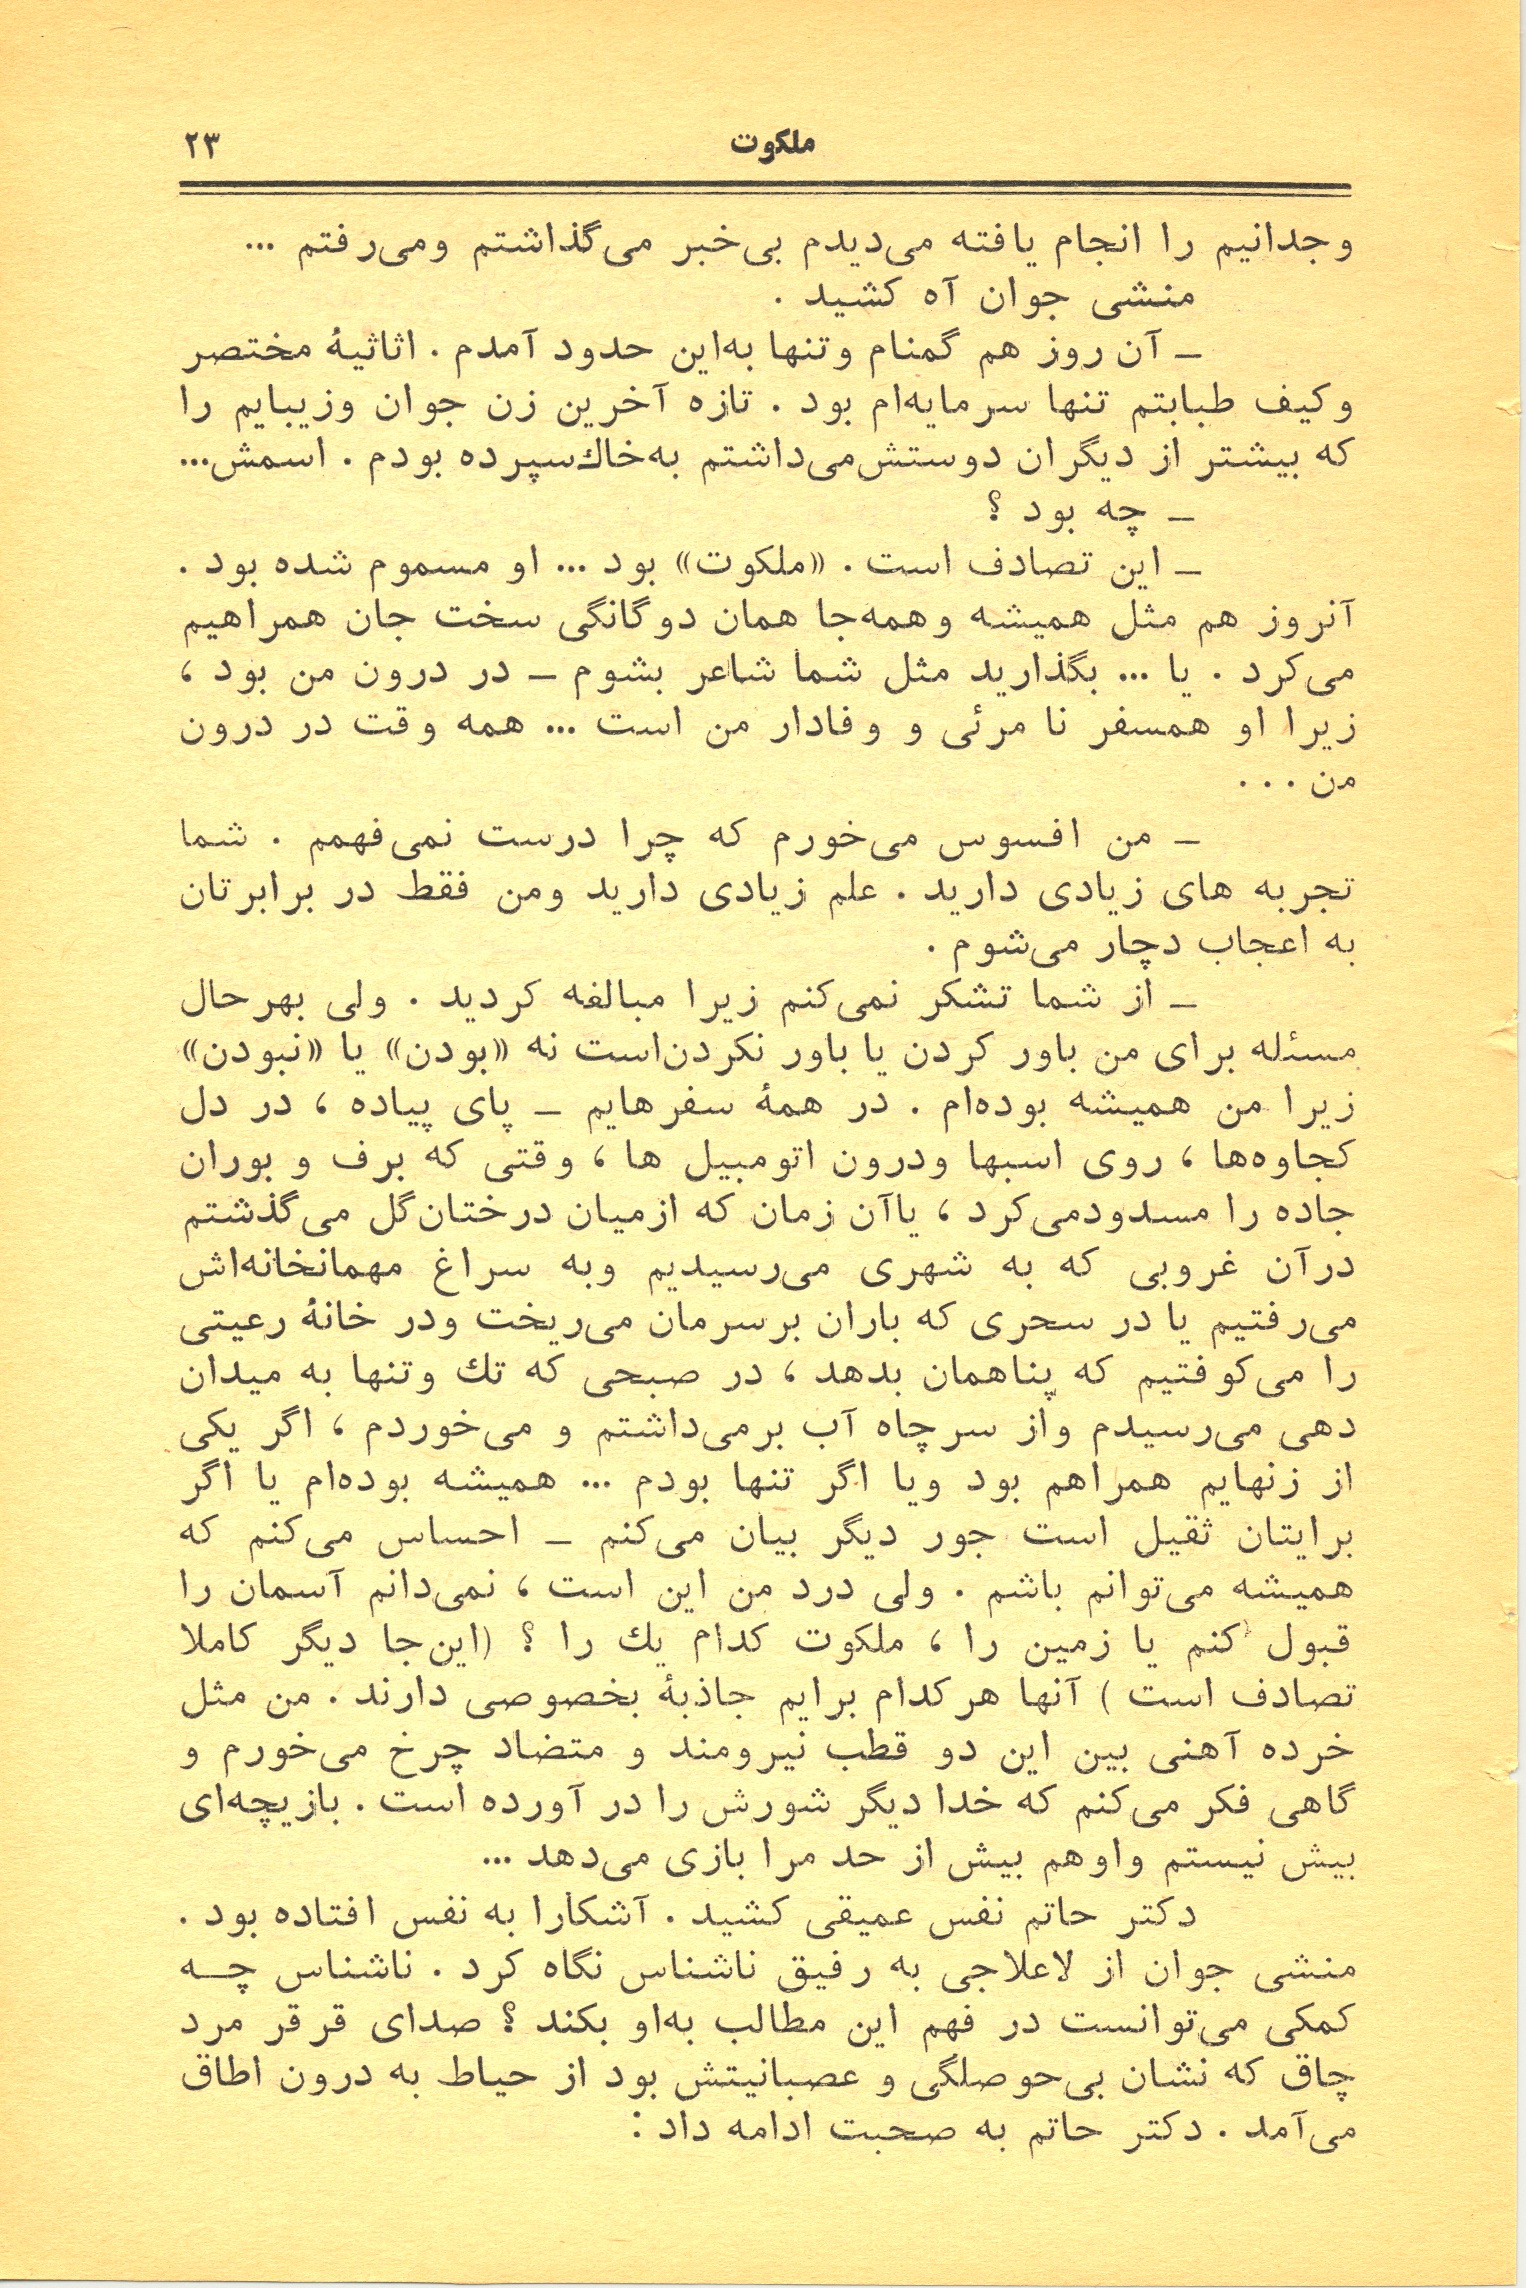 ملکوت ۲۳
وجدانیم را انجام یافته می‌دیدم بی‌خبر می‌گذاشتم ومی‌رفتم ...
منشی جوان آه کشید .
ـ آن روز هم گمنام وتنها به‌این حدود آمدم . اثاثیهٔ مختصر
وکیف طبابتم تنها سرمایه‌ام بود . تازه آخرین زن جوان وزیبایم را
که بیشتر از دیگران دوستش‌می‌داشتم به‌خاك‌سپرده بودم . اسمش...
ـ چه بود ؟
ـ این تصادف است . «ملکوت» بود ... او مسموم شده بود .
آنروز هم مثل همیشه وهمه‌جا همان دوگانگی سخت جان همراهیم
می‌کرد . یا ... بگذارید مثل شما شاعر بشوم ـ در درون من بود ،
زیرا او همسفر نا مرئی و وفادار من است ... همه وقت در درون
من . . .
ـ من افسوس می‌خورم که چرا درست نمی‌فهمم . شما
تجربه های زیادی دارید . علم زیادی دارید ومن فقط در برابرتان
به اعجاب دچار می‌شوم .
ـ از شما تشکر نمی‌کنم زیرا مبالغه کردید . ولی بهرحال
مسئله برای من باور کردن یا باور نکردن‌است نه «بودن» یا «نبودن»
زیرا من همیشه بوده‌ام . در همهٔ سفرهایم ـ پای پیاده ، در دل
کجاوه‌ها ، روی اسبها ودرون اتومبیل ها ، وقتی که برف و بوران
جاده را مسدودمی‌کرد ، یاآن زمان که ازمیان درختان‌گل می‌گذشتم
درآن غروبی که به شهری می‌رسیدیم وبه سراغ مهمانخانه‌اش
می‌رفتیم یا در سحری که باران برسرمان می‌ریخت ودر خانهٔ رعیتی
را می‌کوفتیم که پناهمان بدهد ، در صبحی که تك وتنها به میدان
دهی می‌رسیدم واز سرچاه آب برمی‌داشتم و می‌خوردم ، اگر یکی
از زنهایم همراهم بود ویا اگر تنها بودم ... همیشه بوده‌ام یا اگر
برایتان ثقیل است جور دیگر بیان می‌کنم ـ احساس می‌کنم که
همیشه می‌توانم باشم . ولی درد من این است ، نمی‌دانم آسمان را
قبول کنم یا زمین را ، ملکوت کدام یك را ؟ (این‌جا دیگر کاملا
تصادف است ) آنها هرکدام برایم جاذبهٔ بخصوصی دارند . من مثل
خرده آهنی بین این دو قطب نیرومند و متضاد چرخ می‌خورم و
گاهی فکر می‌کنم که خدا دیگر شورش را در آورده است . بازیچه‌ای
بیش نیستم واوهم بیش از حد مرا بازی می‌دهد ...
دکتر حاتم نفس عمیقی کشید . آشکارا به نفس افتاده بود .
منشی جوان از لاعلاجی به رفیق ناشناس نگاه کرد . ناشناس چـه
کمکی می‌توانست در فهم این مطالب به‌او بکند ؟ صدای قرقر مرد
چاق که نشان بی‌حوصلگی و عصبانیتش بود از حیاط به درون اطاق
می‌آمد . دکتر حاتم به صحبت ادامه داد :